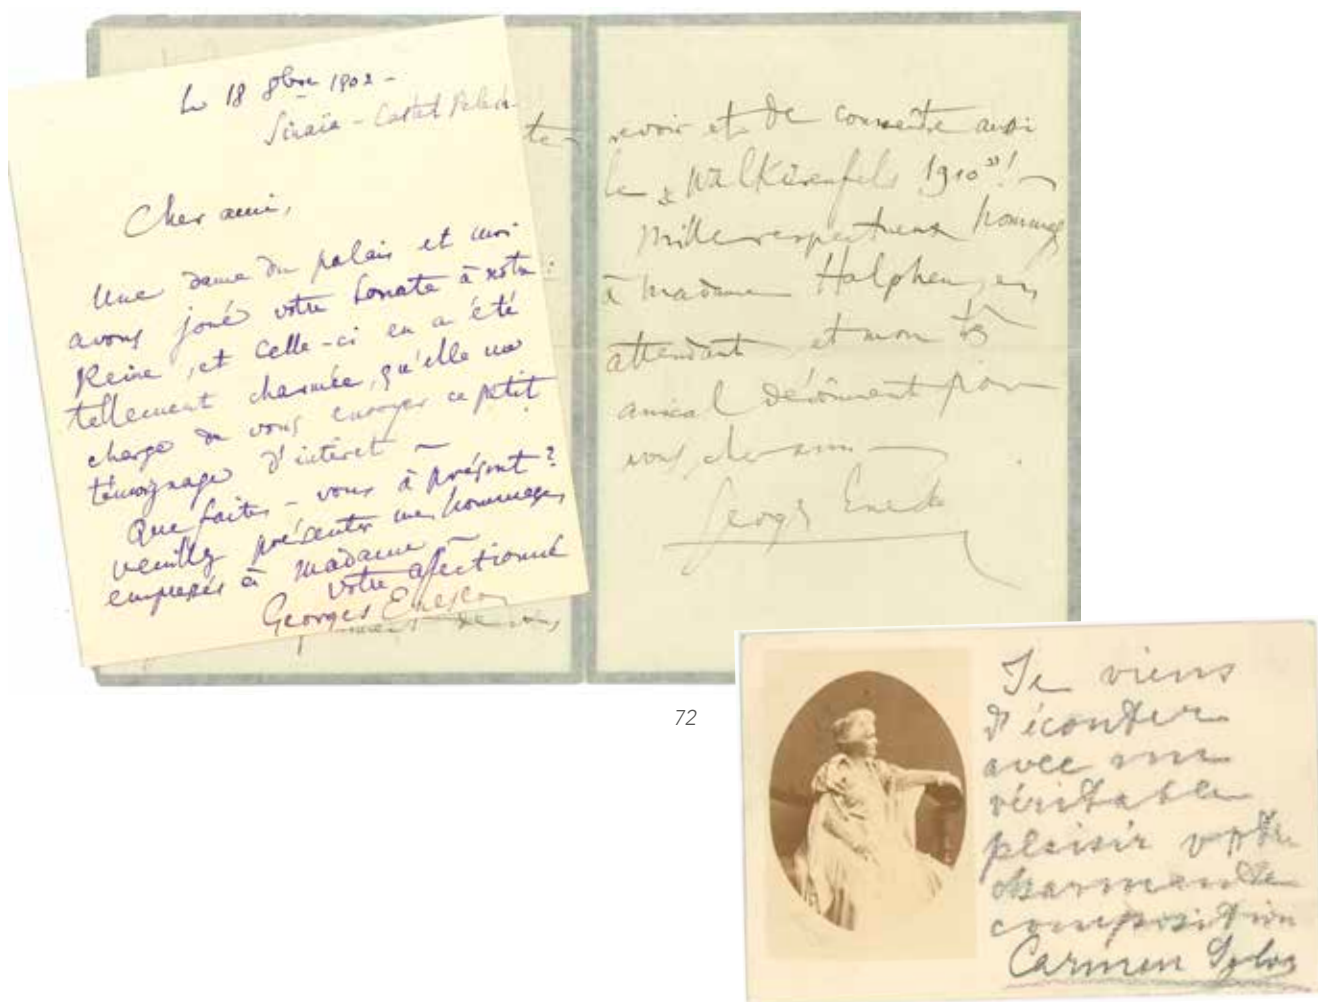 Le 18 8bre 1902 –
Sinaïa – Castel Pelech
Cher ami,
Une dame du palais et moi
avons joué votre Sonate à notre
Reine, et celle-ci en a été
tellement charmée, qu'elle me
charge de vous envoyer ce petit
témoignage d'intérêt –
Que faites-vous à présent?
veuillez présenter mes hommages
empressés à madame –
votre affectionné
Georges Enesco
revoir et de connaître aussi
le „Walkürenfels 1910"! –
Mille respectueux hommages
à Madame Halphen, en
attendant et mon très
amical dévoûment pour
vous, cher ami –
Georges Enesco
72
Je viens
d'écouter
avec un
véritable
plaisir votre
charmante
composition
Carmen Sylva